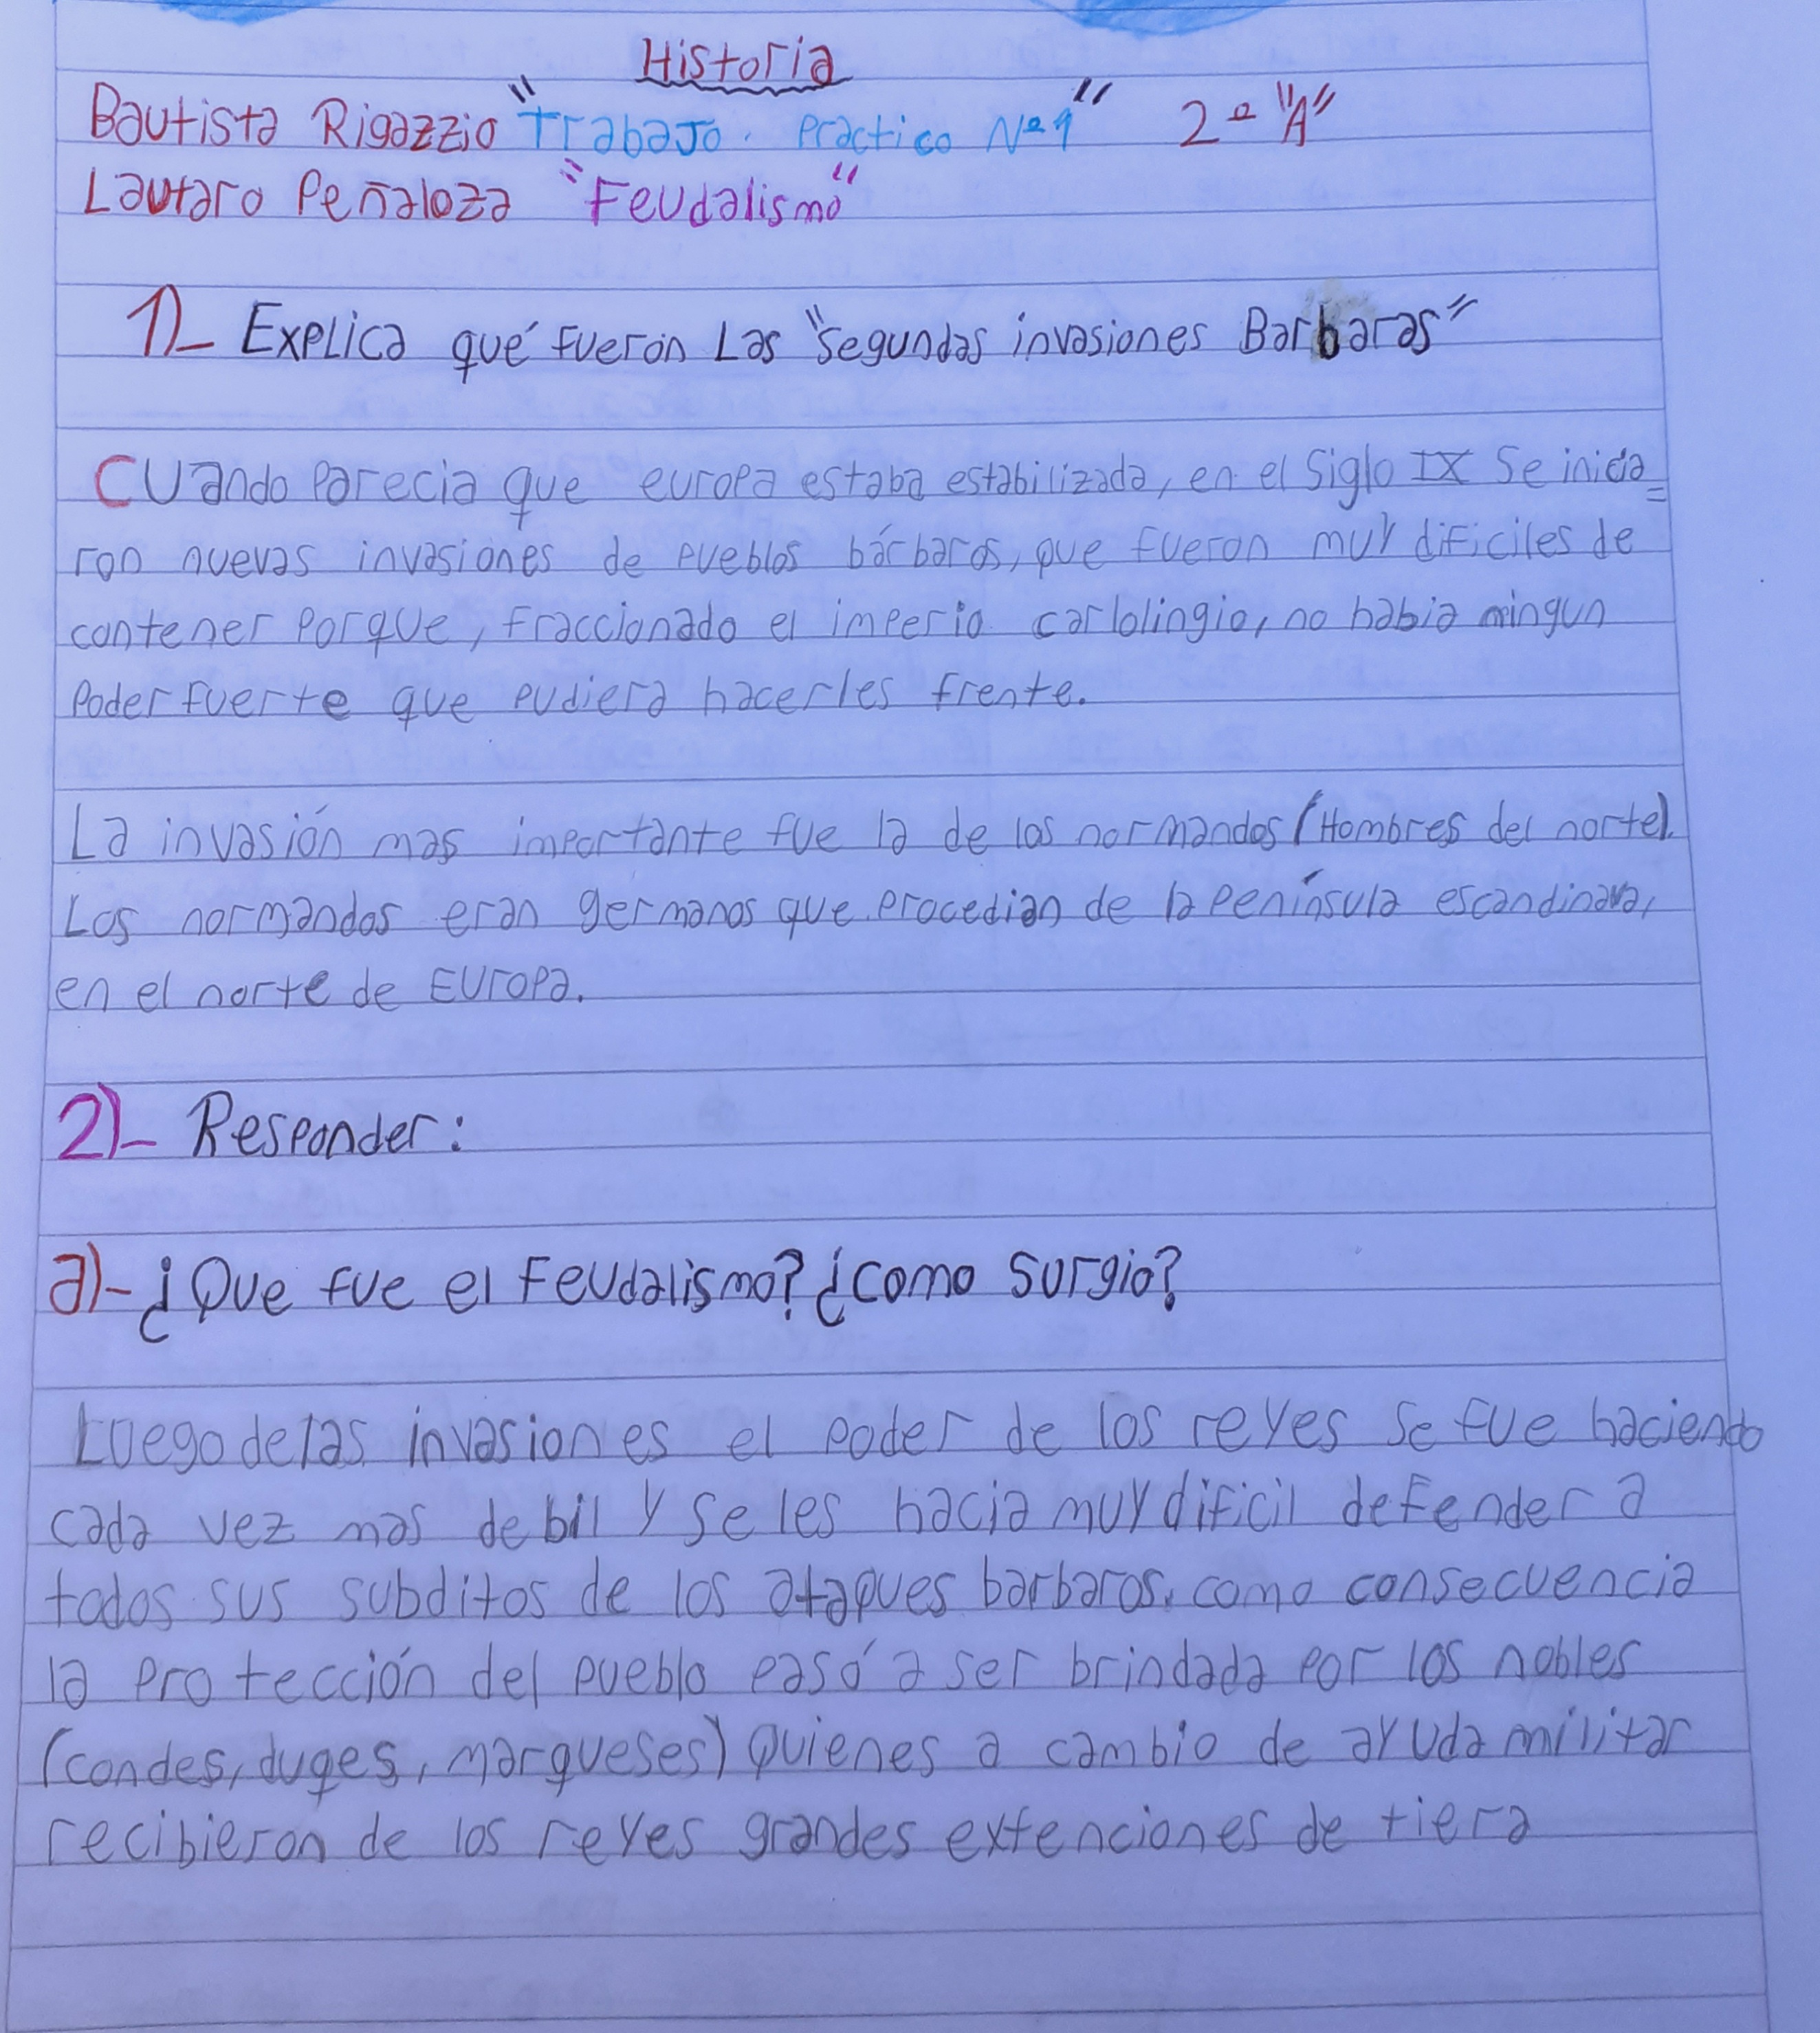 Historia
Bautista Rigazzio "Trabajo. Practico Nº1" 2º "A"
Lautaro Peñaloza "Feudalismo"
1)_ Explica qué fueron Las "Segundas invasiones Barbaras"
Cuando parecia que europa estaba estabilizada, en el Siglo IX Se inicia=
ron nuevas invasiones de pueblos bárbaros, que fueron muy dificiles de
contener porque, fraccionado el imperio carlolingio, no habia ningun
poder fuerte que pudiera hacerles frente.
La invasión mas importante fue la de los normandos (Hombres del norte).
Los normandos eran germanos que procedian de la península escandinava,
en el norte de Europa.
2)_ Responder:
a)- ¿Que fue el Feudalismo? ¿como Surgio?
Luego de las invasiones el poder de los reyes se fue haciendo
cada vez mas debil y se les hacia muy dificil defender a
todos sus subditos de los ataques barbaros. como consecuencia
la protección del pueblo pasó a ser brindada por los nobles
(condes, duqes, marqueses) Quienes a cambio de ayuda militar
recibieron de los reyes grandes extenciones de tiera